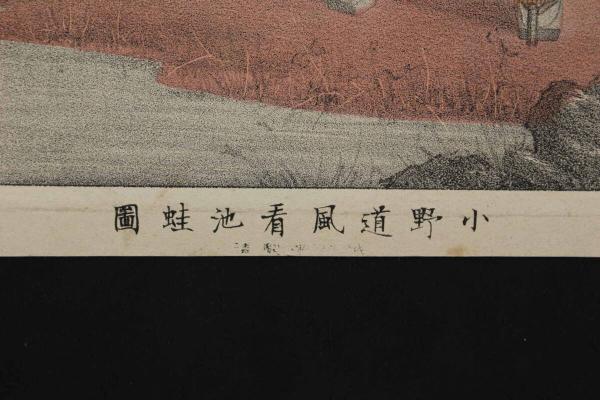 小野道風看池蛙圖